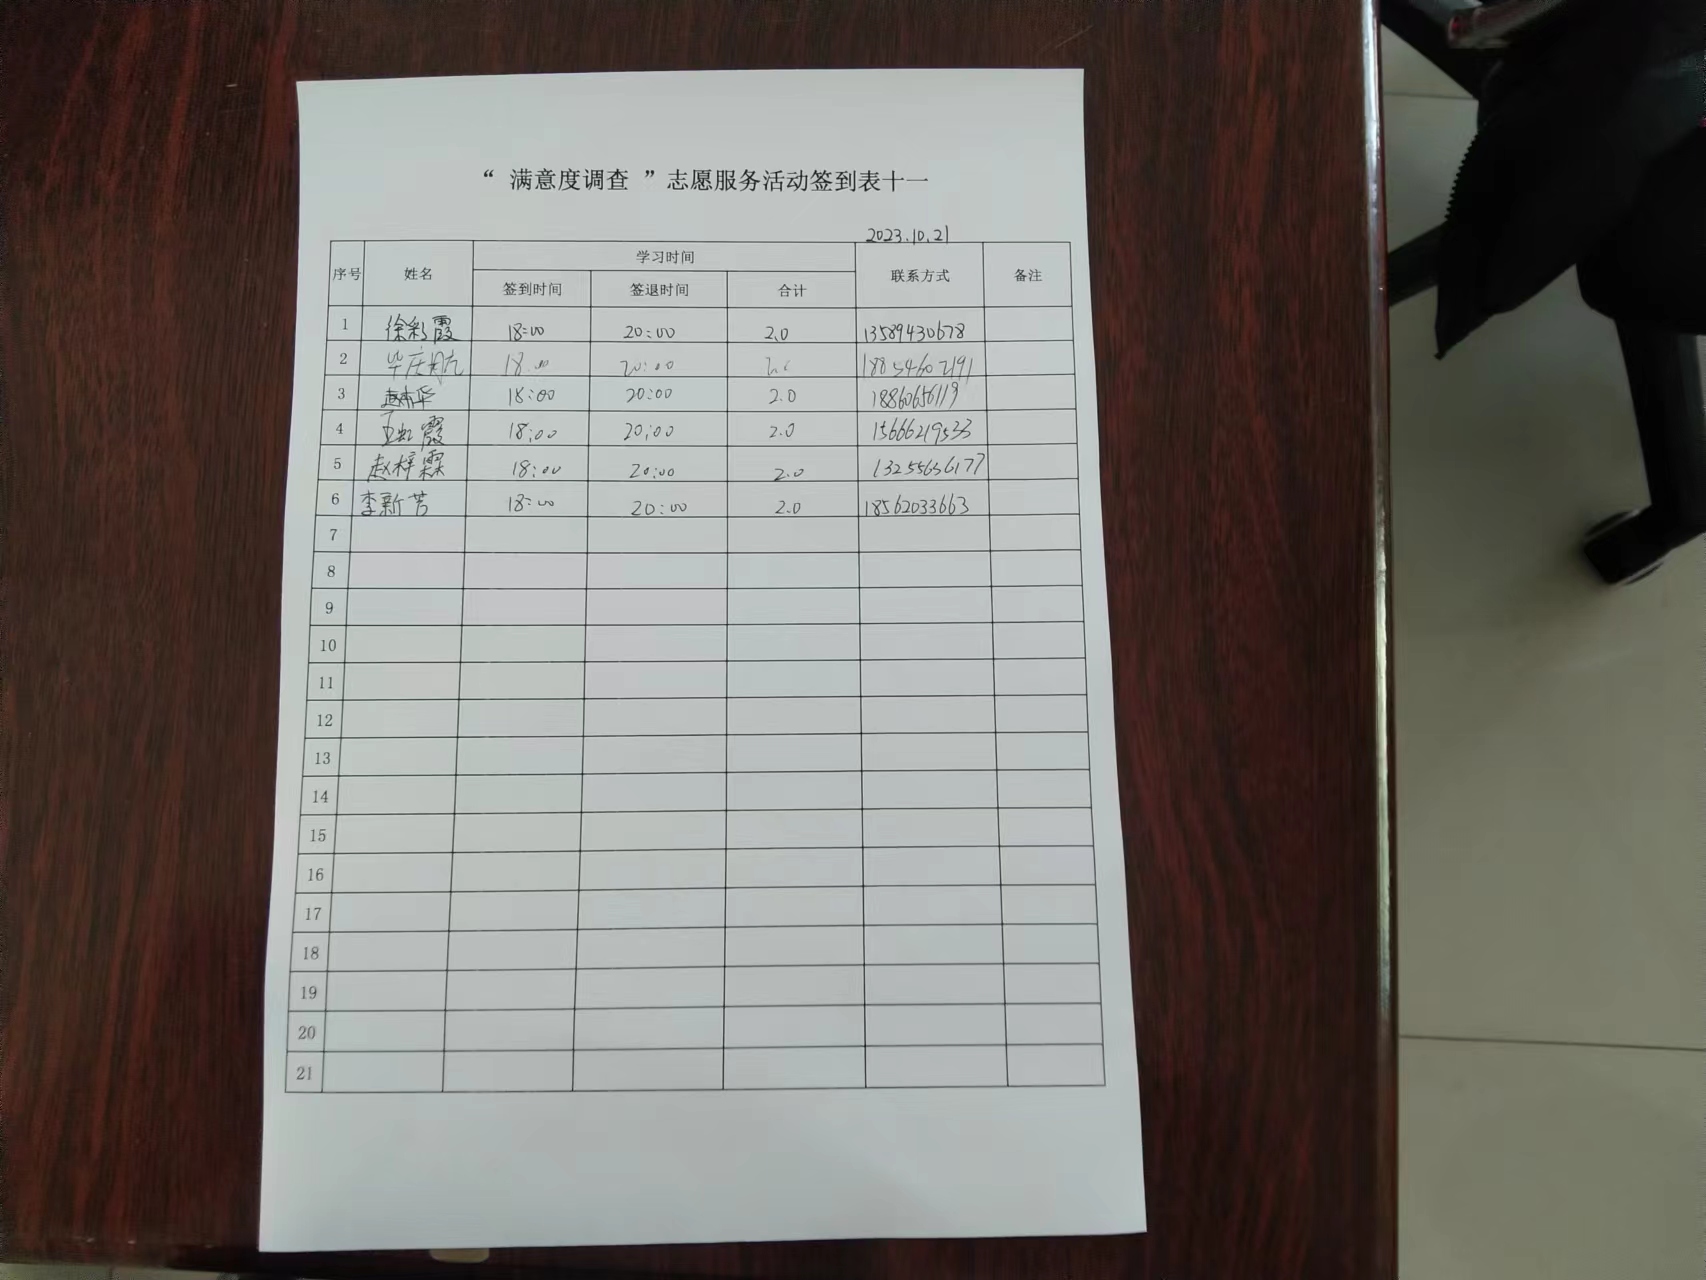 “ 满意度调查 ”志愿服务活动签到表十一
2023.10.21
序号 姓名 学习时间 联系方式 备注
签到时间 签退时间 合计
1 徐彩霞 18:00 20:00 2.0 13589430678
2 毕庆航 18:00 20:00 18854602191
3 18:00 20:00 2.0 18860656119
4 王虹霞 18:00 20:00 2.0 15666219533
5 赵梓霖 18:00 20:00 2.0 13255636177
6 李新芳 18:00 20:00 2.0 18562033663
7
8
9
10
11
12
13
14
15
16
17
18
19
20
21